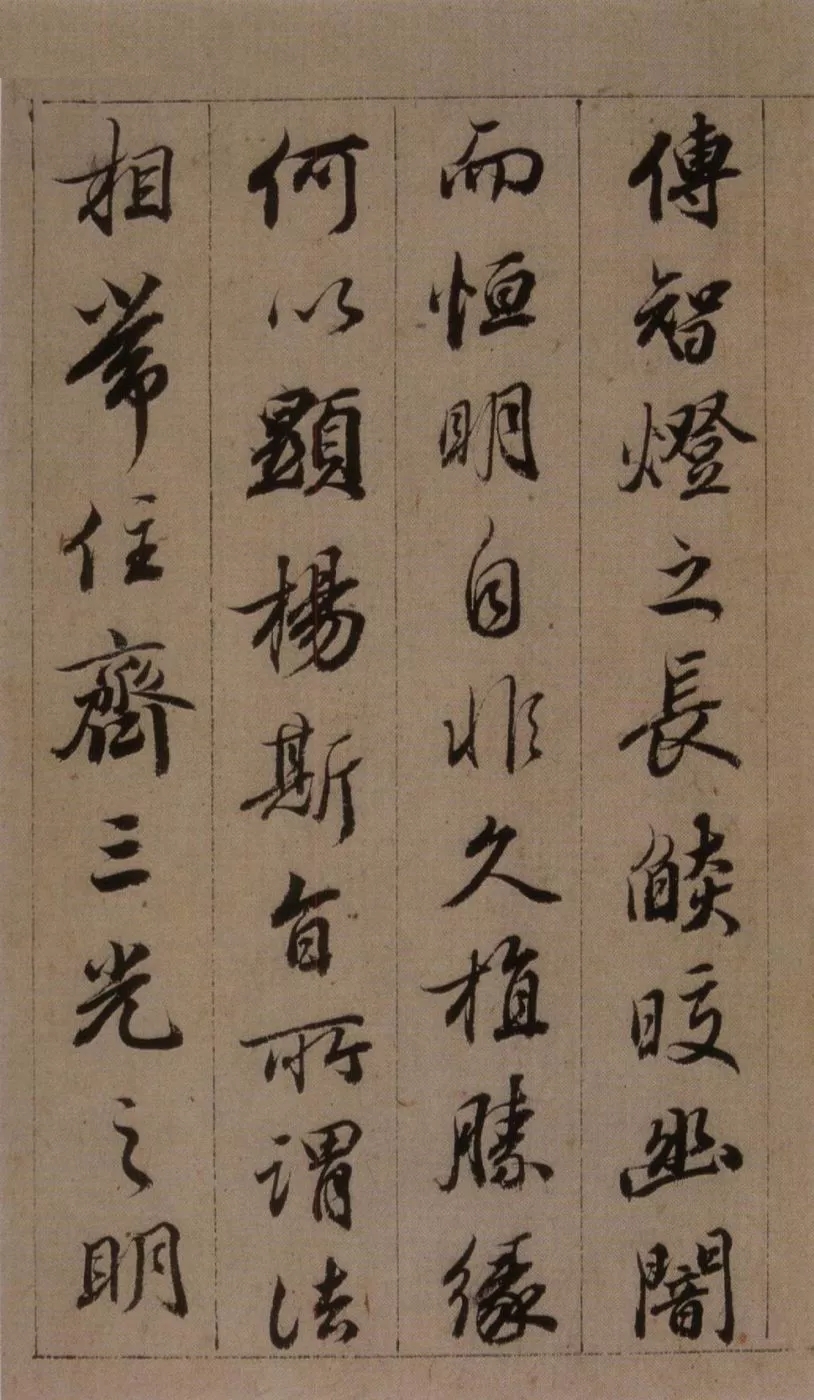 傳智燈之長燄皎幽闇
而恒明自非久植勝緣
何以顯楊斯旨所謂法
相常住齊三光之明